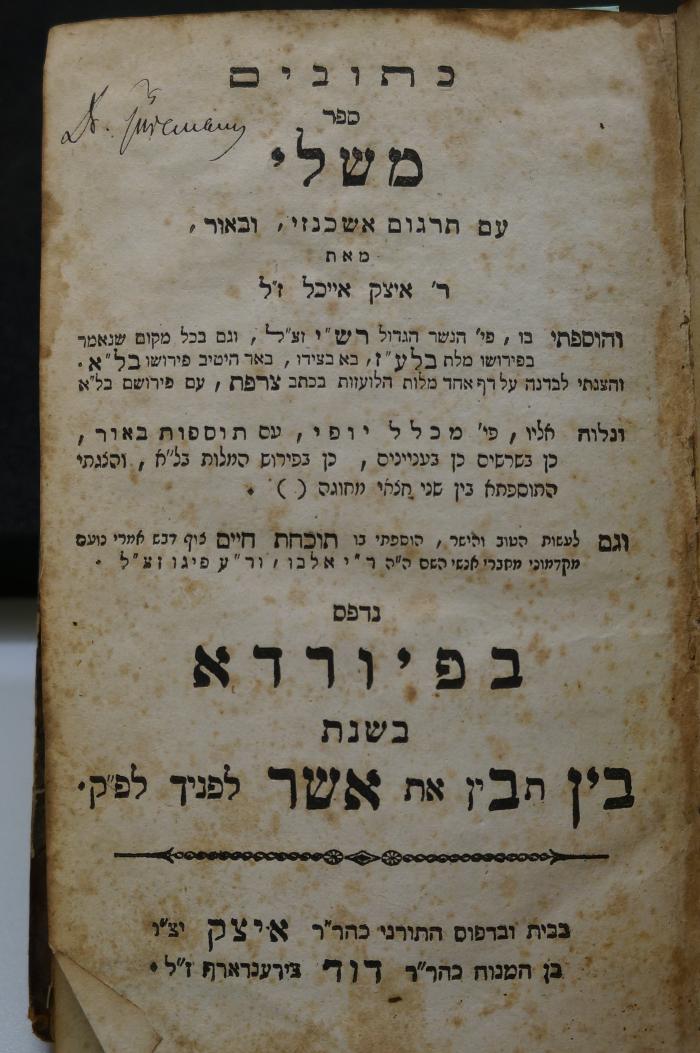 כתובים
Dr.
ספר
משלי
עם תרגום אשכנזי, ובאור,
מאת
ר' איצק אייכל ז"ל
והוספתי בו, פי' הנשר הגדול רש"י זצ"ל, וגם בכל מקום שנאמר
בפירושו מלת בלע"ז, בא בצידו, באר היטיב פירושו בל"א.
והצגתי לבדנה על דף אחד מלות הלועזות בכתב צרפת, עם פירושם בל"א
ונלוה אליו, פי' מכלל יופי, עם תוספות באור,
כן בשרשים כן בעניינים, כן בפירוש המלות בל"א, והצגתי
התוספתא בין שני חצאי מחוגה ( ).
וגם לעשות הטוב והישר, הוספתי בו תוכחת חיים צוף דבש אמרי נועם
מקדמוני מחברי אנשי השם ה"ה ר"י אלבו, ור"ע פיגו זצ"ל.
נדפס
בפיורדא
בשנת
בין תבין את אשר לפניך לפ"ק.
בבית ובדפוס התורני כהר"ר איצק יצ"ו
בן המנוח כהר"ר דוד צירענדארף ז"ל.